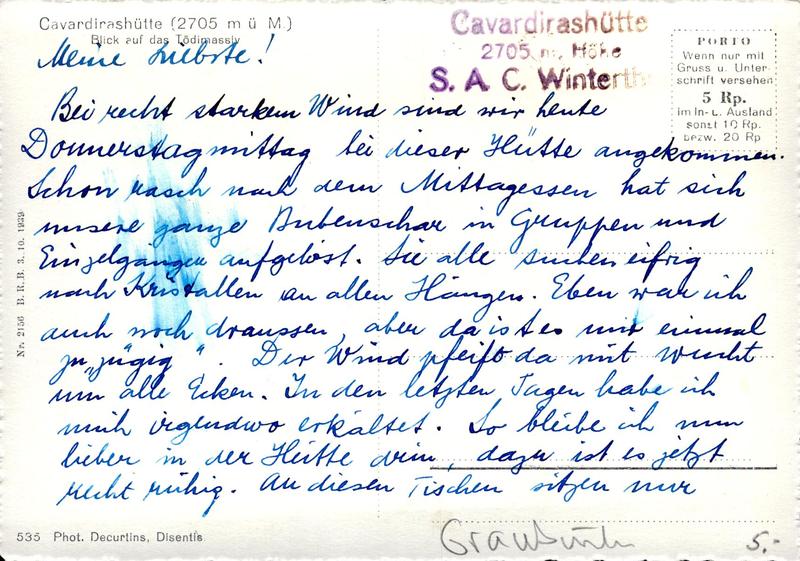 Cavardirashütte (2705 m ü M.)
Blick auf das Tödimassiv
Cavardirashütte
2705 m. Höhe
S. A. C. Winterth
PORTO
Wenn nur mit
Gruss u. Unter-
schrift versehen
5 Rp.
im In- u. Ausland
sonst 10 Rp.
bezw. 20 Rp
Meine Liebste!
Bei recht starkem Wind sind wir heute
Donnerstagmittag bei dieser Hütte angekommen.
Schon rasch nach dem Mittagessen hat sich
unsere ganze Bubenschar in Gruppen und
Einzelgänger aufgelöst. Sie alle suchen eifrig
nach Kristallen an allen Hängen. Eben war ich
auch noch draussen, aber da ist es mir einmal
zu "zügig". Der Wind pfeift da mit Wucht
um alle Ecken. In den letzten Tagen habe ich
mich irgendwo erkältet. So bleibe ich nun
lieber in der Hütte drin, dazu ist es jetzt
recht ruhig. An diesen Tischen sitzen nur
Nr. 2156 B.R.B. 3. 10. 1939
535 Phot. Decurtins, Disentis
Graubünden
5.-